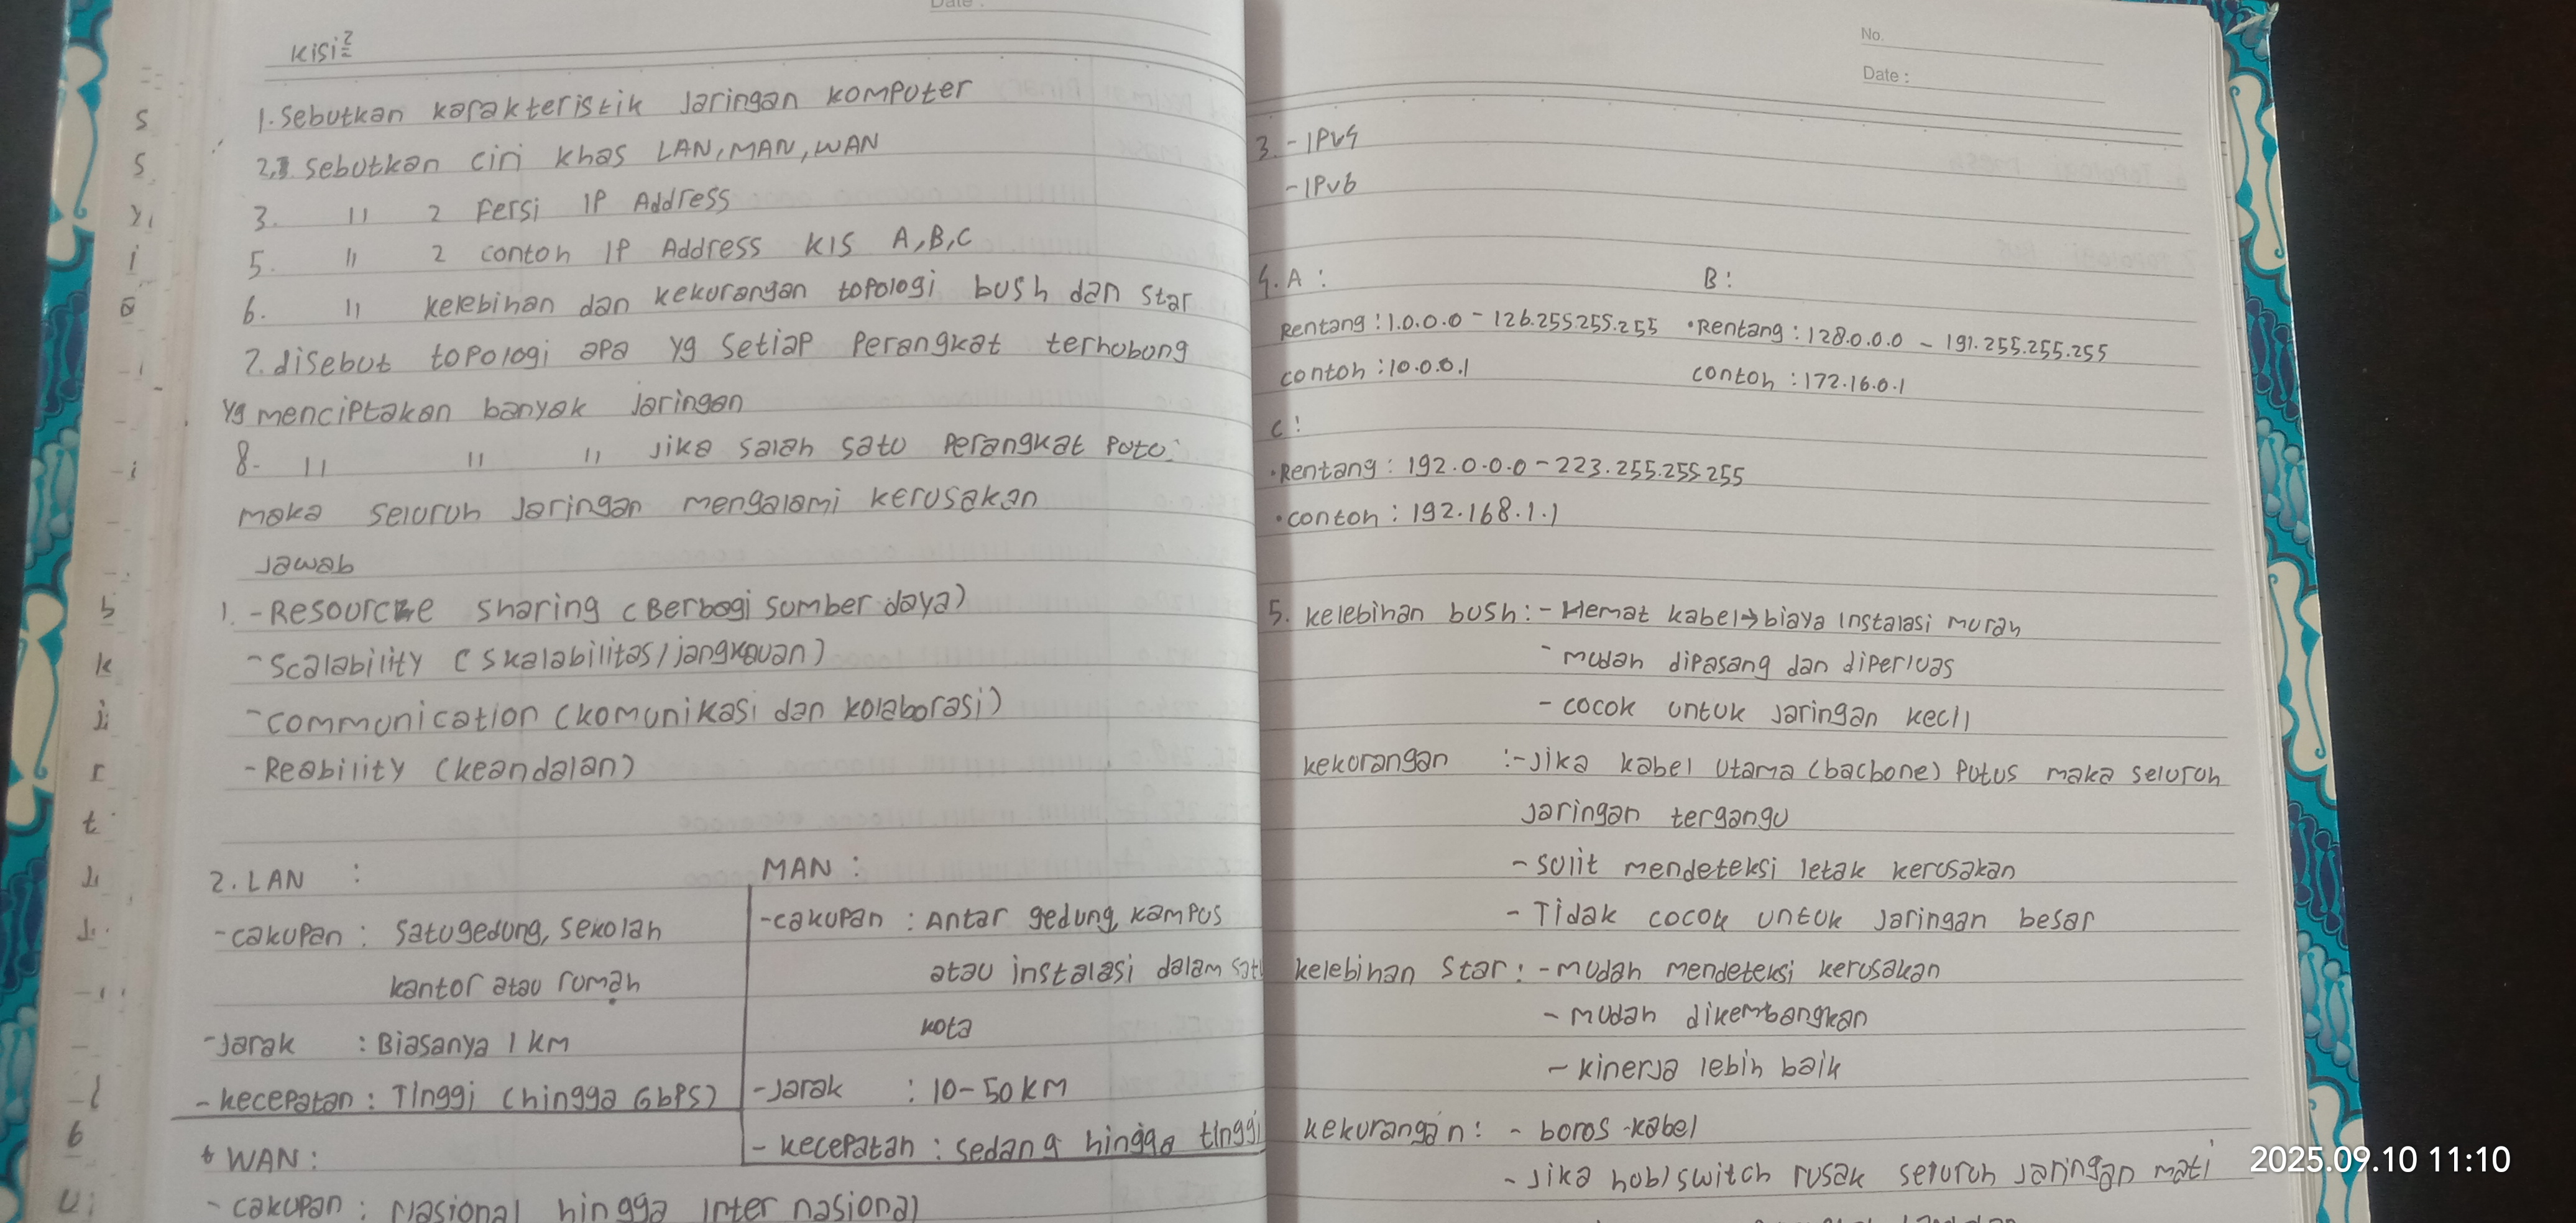 Date :
Kisi²
1. Sebutkan karakteristik Jaringan komputer
2. sebutkan ciri khas LAN, MAN, WAN
3. " 2 Fersi IP Address
5. " 2 contoh IP Address KIS A, B, C
6. " kelebihan dan kekurangan topologi bush dan Star
7. disebut topologi apa yg setiap Perangkat terhubung
yg menciptakan banyak jaringan
8. " " " Jika salah satu Perangkat Putu
maka seluruh Jaringan mengalami kerusakan
Jawab
1. - Resource sharing (Berbagi sumber daya)
- Scalability (skalabilitas/jangkauan)
- communication (komunikasi dan kolaborasi)
- Reability (keandalan)
2. LAN :
- cakupan : Satu gedung, sekolah
kantor atau rumah
- Jarak : Biasanya 1 KM
- kecepatan : Tinggi (hingga GbPS)
MAN :
- cakupan : Antar gedung, kampus
atau instalasi dalam satu
kota
- Jarak : 10-50 KM
- kecepatan : sedang hingga tinggi
WAN :
- cakupan : Nasional hingga Internasional
No.
Date :
3. - IPv4
- IPv6
4. A :
Rentang : 1.0.0.0 - 126.255.255.255
contoh : 10.0.0.1
B :
• Rentang : 128.0.0.0 - 191.255.255.255
contoh : 172.16.0.1
C :
• Rentang : 192.0.0.0 - 223.255.255.255
• contoh : 192.168.1.1
5. kelebihan bush : - Hemat kabel → biaya instalasi murah
- mudah dipasang dan diperluas
- cocok untuk jaringan kecil
kekurangan : - Jika kabel utama (bacbone) Putus maka seluruh
Jaringan tergangu
- Sulit mendeteksi letak kerusakan
- Tidak cocok untuk Jaringan besar
kelebihan Star : - mudah mendeteksi kerusakan
- mudah dikembangkan
- kinerja lebih baik
kekurangan : - boros kabel
- Jika hub/switch rusak seluruh Jaringan mati
2025.09.10 11:10